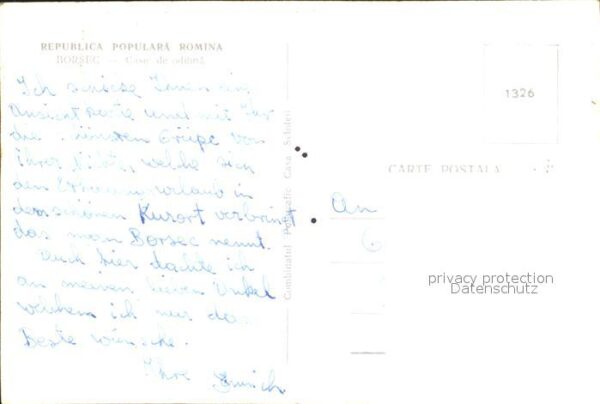 REPUBLICA POPULARĂ ROMINA
BORSEC — Case de odihnă
Ich schicke Ihnen eine
Ansicht karte und mit
die schönsten Grüpe von
ihrer welche sich
den Erholungsurlaub in
dem schönen Kurort verbrinet
das man Borsec nennt.
Auch hier dachte ich
an meinen lieben Onkel
welchem ich nur das
Beste wünsche.
Ihre
Combinatul Poligrafic Casa Scînteii
1326
CARTE POSTALA
An
privacy protection
Datenschutz